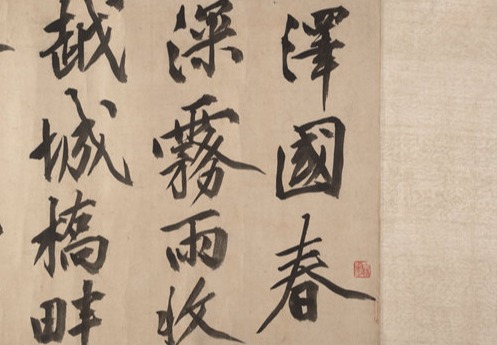 澤國春
深霧雨收
越城橋畔